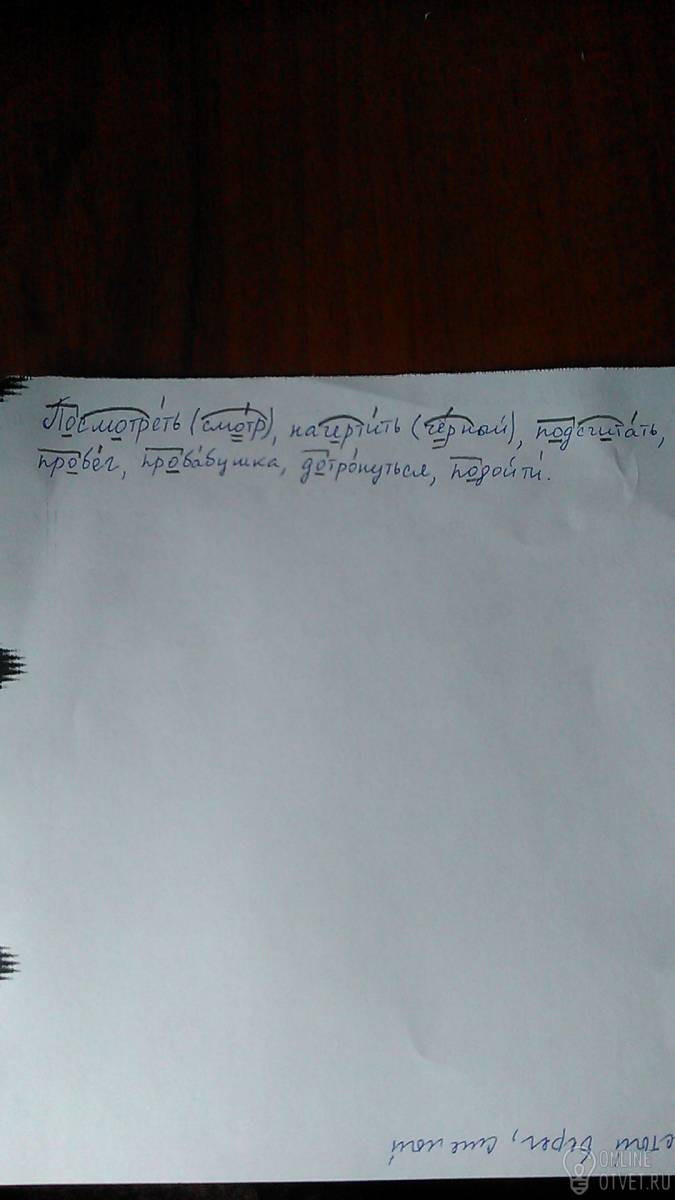 Посмотре́ть (смо́тр), начерти́ть (чёрный), подсчита́ть,
провёг, проба́бушка, дотро́нуться, подойти́.
берег,
ONLINE
OTVET.RU